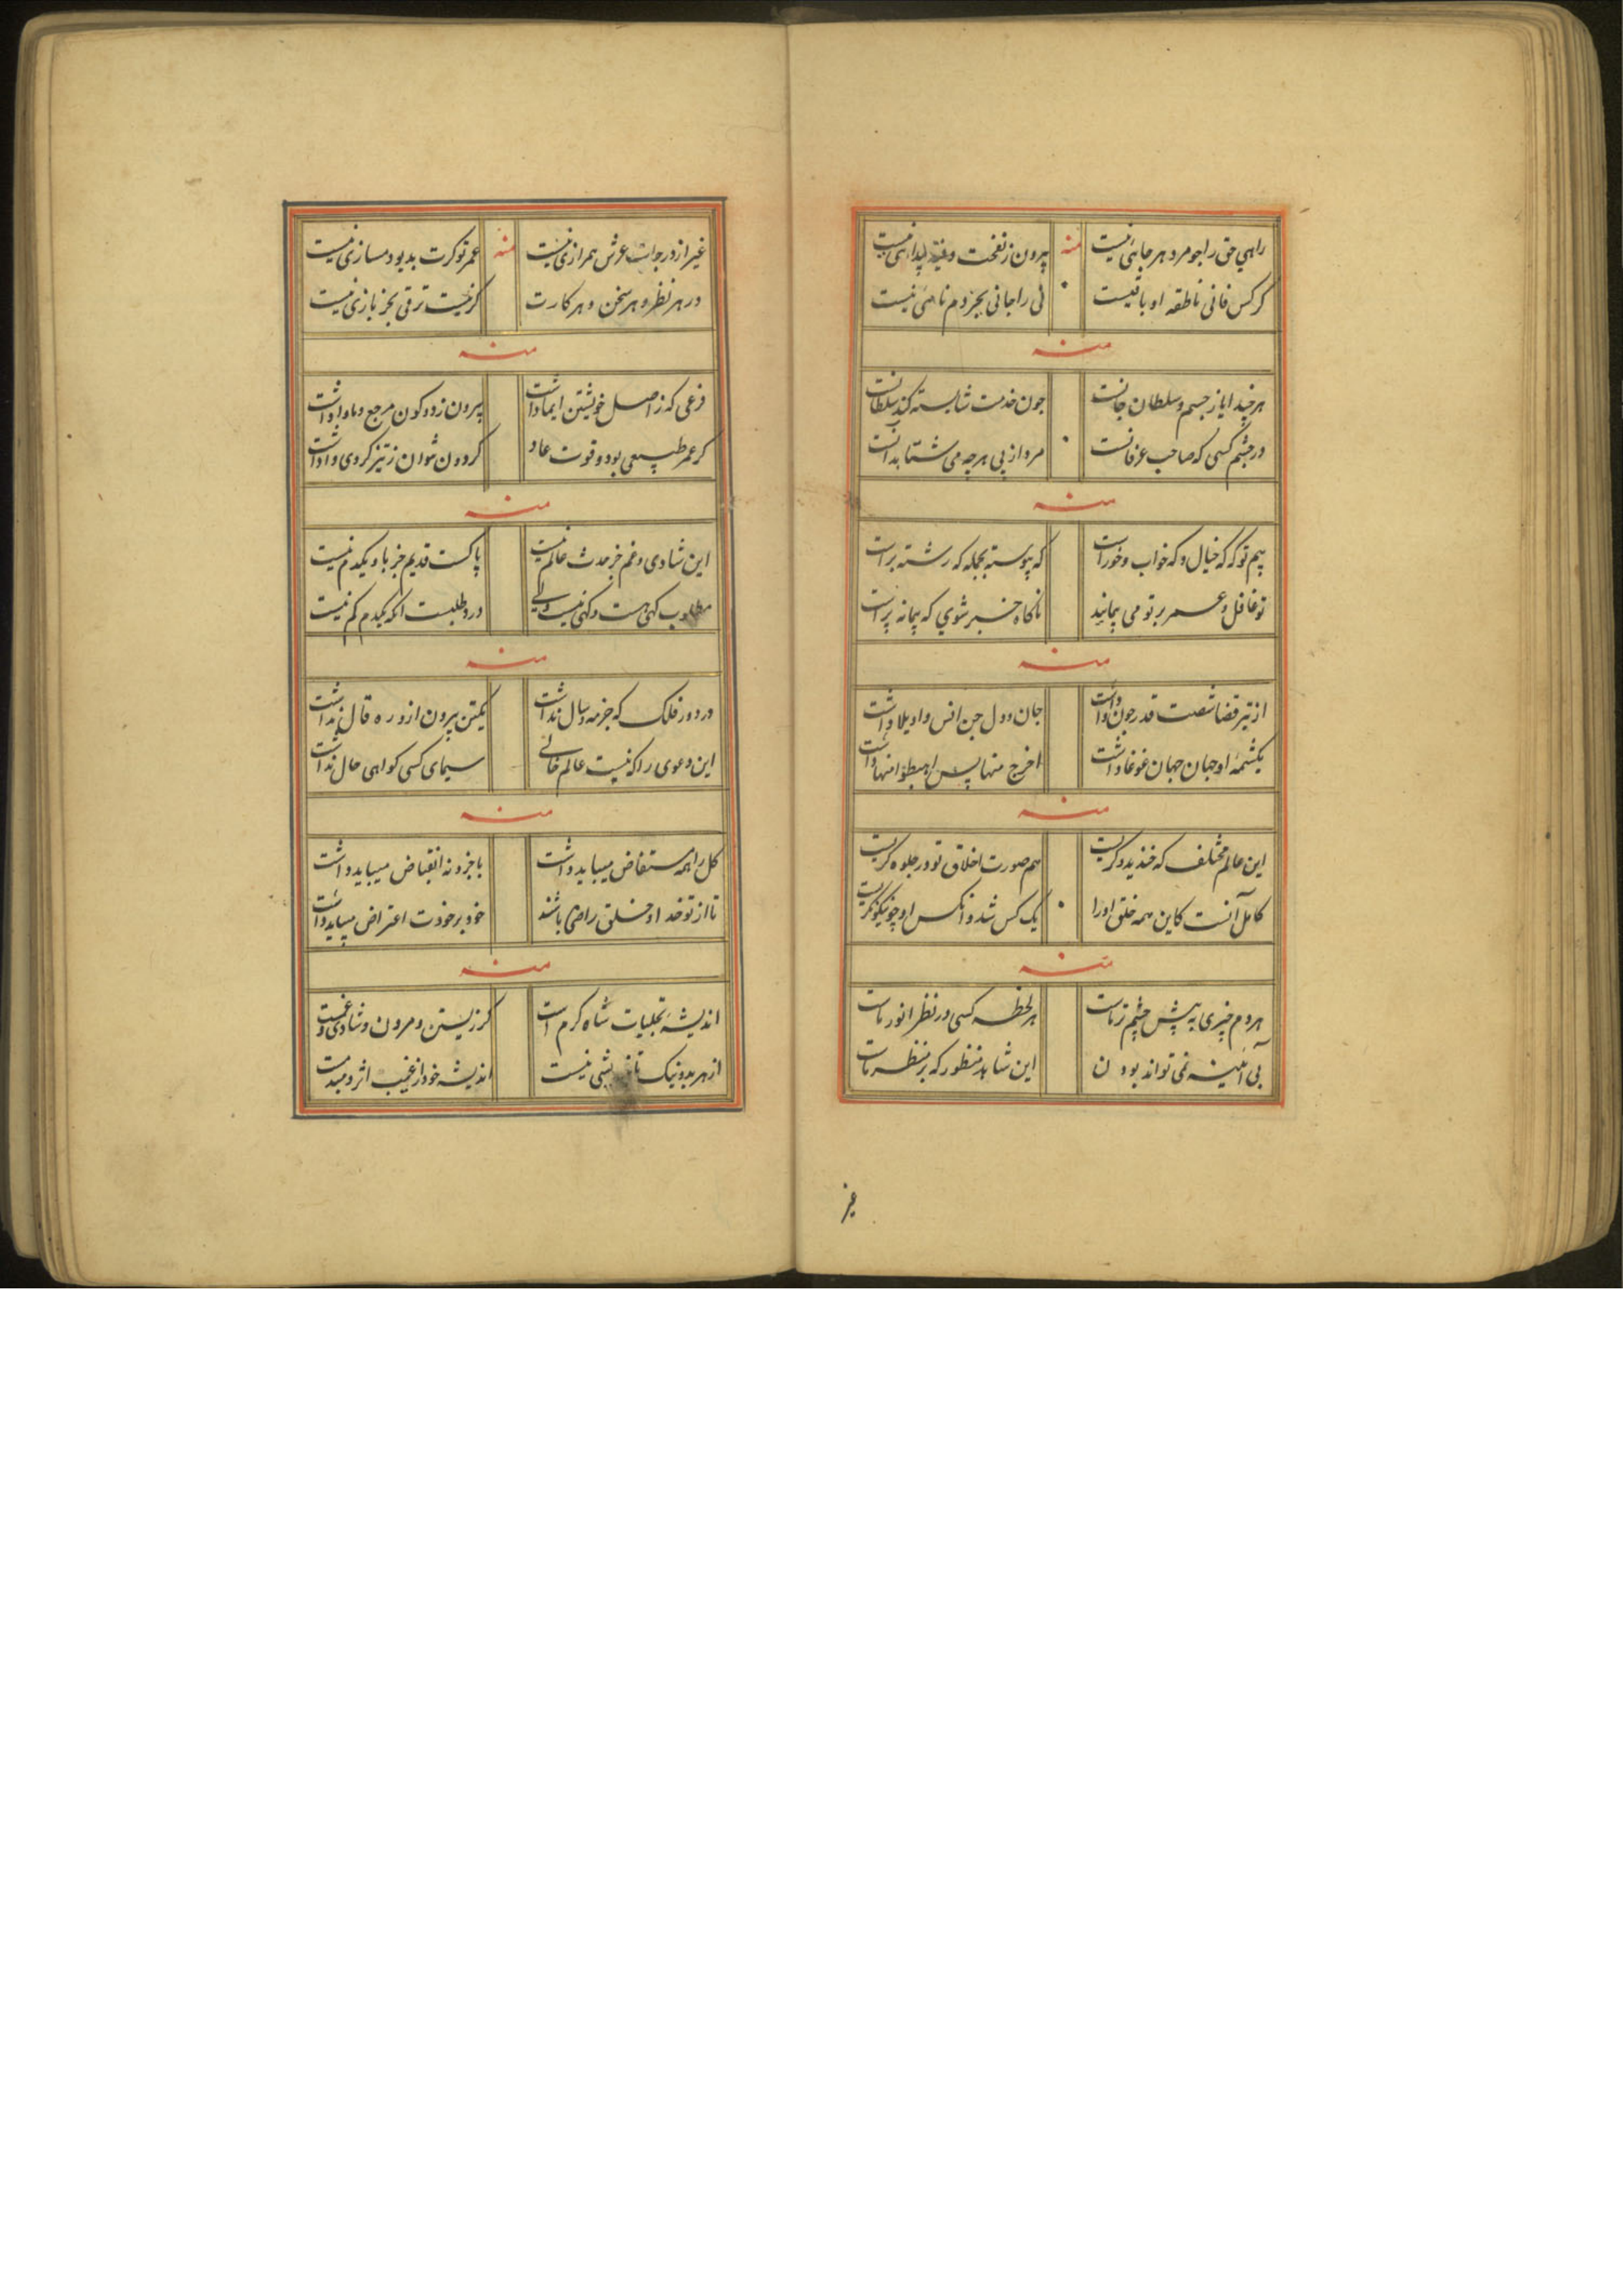 راهی حق را جو مرو هر جائی نیست منه بیرون ز نفخت و فیه پیدائی نیست
گر کس فانی ناطقه او باقیست نی را جانی بجز دم نائی نیست
منه
هر چند ایاز جسم و سلطان جانست چون خدمت شایسته کند سلطانست
در چشم کسی که صاحب عرفانست مرد از پی هر چه می شتابد آنست
منه
بیم تو که که خیال و که خواب و خور است که پیوسته بجمله که رشته براست
تو غافل و عمر بر تو می پیماید ناگاه خبر شوی که پیمانه پر است
منه
از تیر قضا شصت قدر چون واداشت جان و دل جن انس واویلا داشت
یکشمه او جهان جهان غوغا داشت اخرج منها پس اهبطوا منها داشت
منه
این عالم مختلف که خندید و گریست هم صورت اخلاق تو در جلوه گریست
کامل آنست کاین همه خلق اورا یک کس شد و انکس او چو نیکو نگریست
منه
هر دم چیزی به پیش چشم تر ماست هر لحظه کسی در نظر انور ماست
بی آئینه نمی تواند بودن این شاهد منظور که بر منظر ماست
غیر
غیر از درجات عرش همرازی نیست منه عمر تو گرت بد بود مسازی نیست
در هر نظر و هر سخن و هر کارت گر نیست ترقی بجز بازی نیست
منه
فرعی که ز اصل خویشتن ایما داشت بیرون ز دو کون مرجع و ماوا داشت
گر عمر طبیعی بود و قوت عاد گردون نتوان ز تیز گردی واداشت
منه
این شادی و غم جز حدث عالم نیست پاکست قدیم جز با و یکدم نیست
مطلوب گهی هست و گهی نیست ولی درد طلبست آنکه یکدم کم نیست
منه
در دور فلک که جز مه و سال نداشت یکتن بیرون از در ه قال نداشت
این دعوی را که نیست عالم خالی سیمای کسی گواهی حال نداشت
منه
کل را همه مستفاض میباید داشت با جزو نه انقباض میباید داشت
تا از تو خدا و خلق راضی باشند خود بر خودت اعتراض میباید داشت
منه
اندیشه تجلیات شاه کرم است گر زیستن و مردن و شادی و غمست
از هر بد و نیک نیست اندیشه خود از غیب اثر دمبدمست